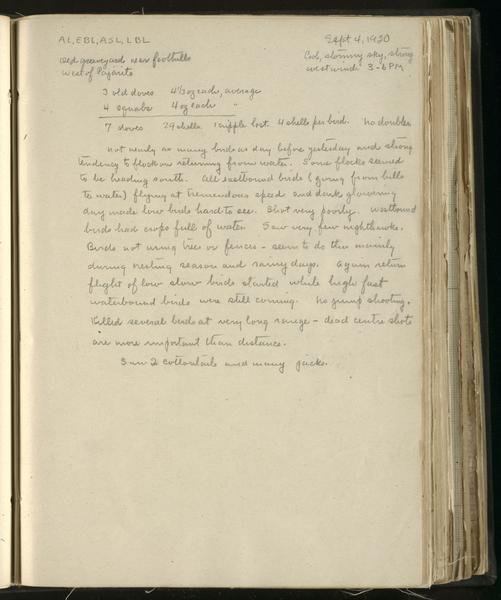 AL, EBL, ASL, LBL Sept 4, 1920
Old graveyard near foothills Cool, stormy sky, strong
west of Pajarito west wind 3-6 PM
3 old doves 4 1/3 oz each, average
4 squabs 4 oz each "
7 doves 29 shells. 1 cripple lost. 4 shells per bird. No doubles
Not nearly as many birds as day before yesterday and strong
tendency to flock on returning from water. Some flocks seemed
to be heading south. All eastbound birds (going from hills
to water) flying at tremendous speed and dark glowering
day made low birds hard to see. Shot very poorly. Westbound
birds had crops full of water. Saw very few nighthawks.
Birds not using trees or fences - seem to do this mainly
during nesting season and rainy days. Again return
flight of low slow birds started while high fast
waterbound birds were still coming. No jump shooting.
Killed several birds at very long range - dead centre shots
are more important than distance.
Saw 2 cottontails and many jacks.